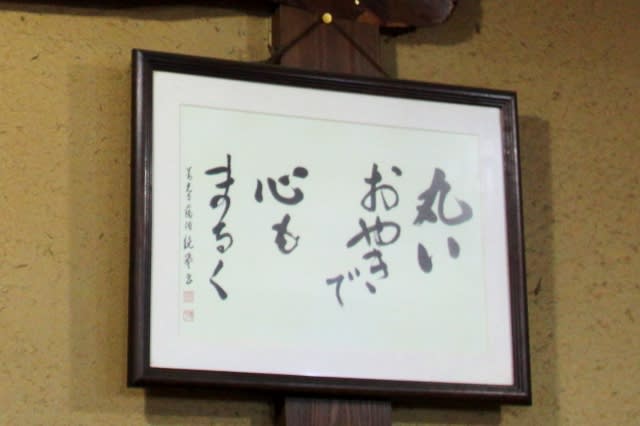 丸い
おやきで
心も
まるく